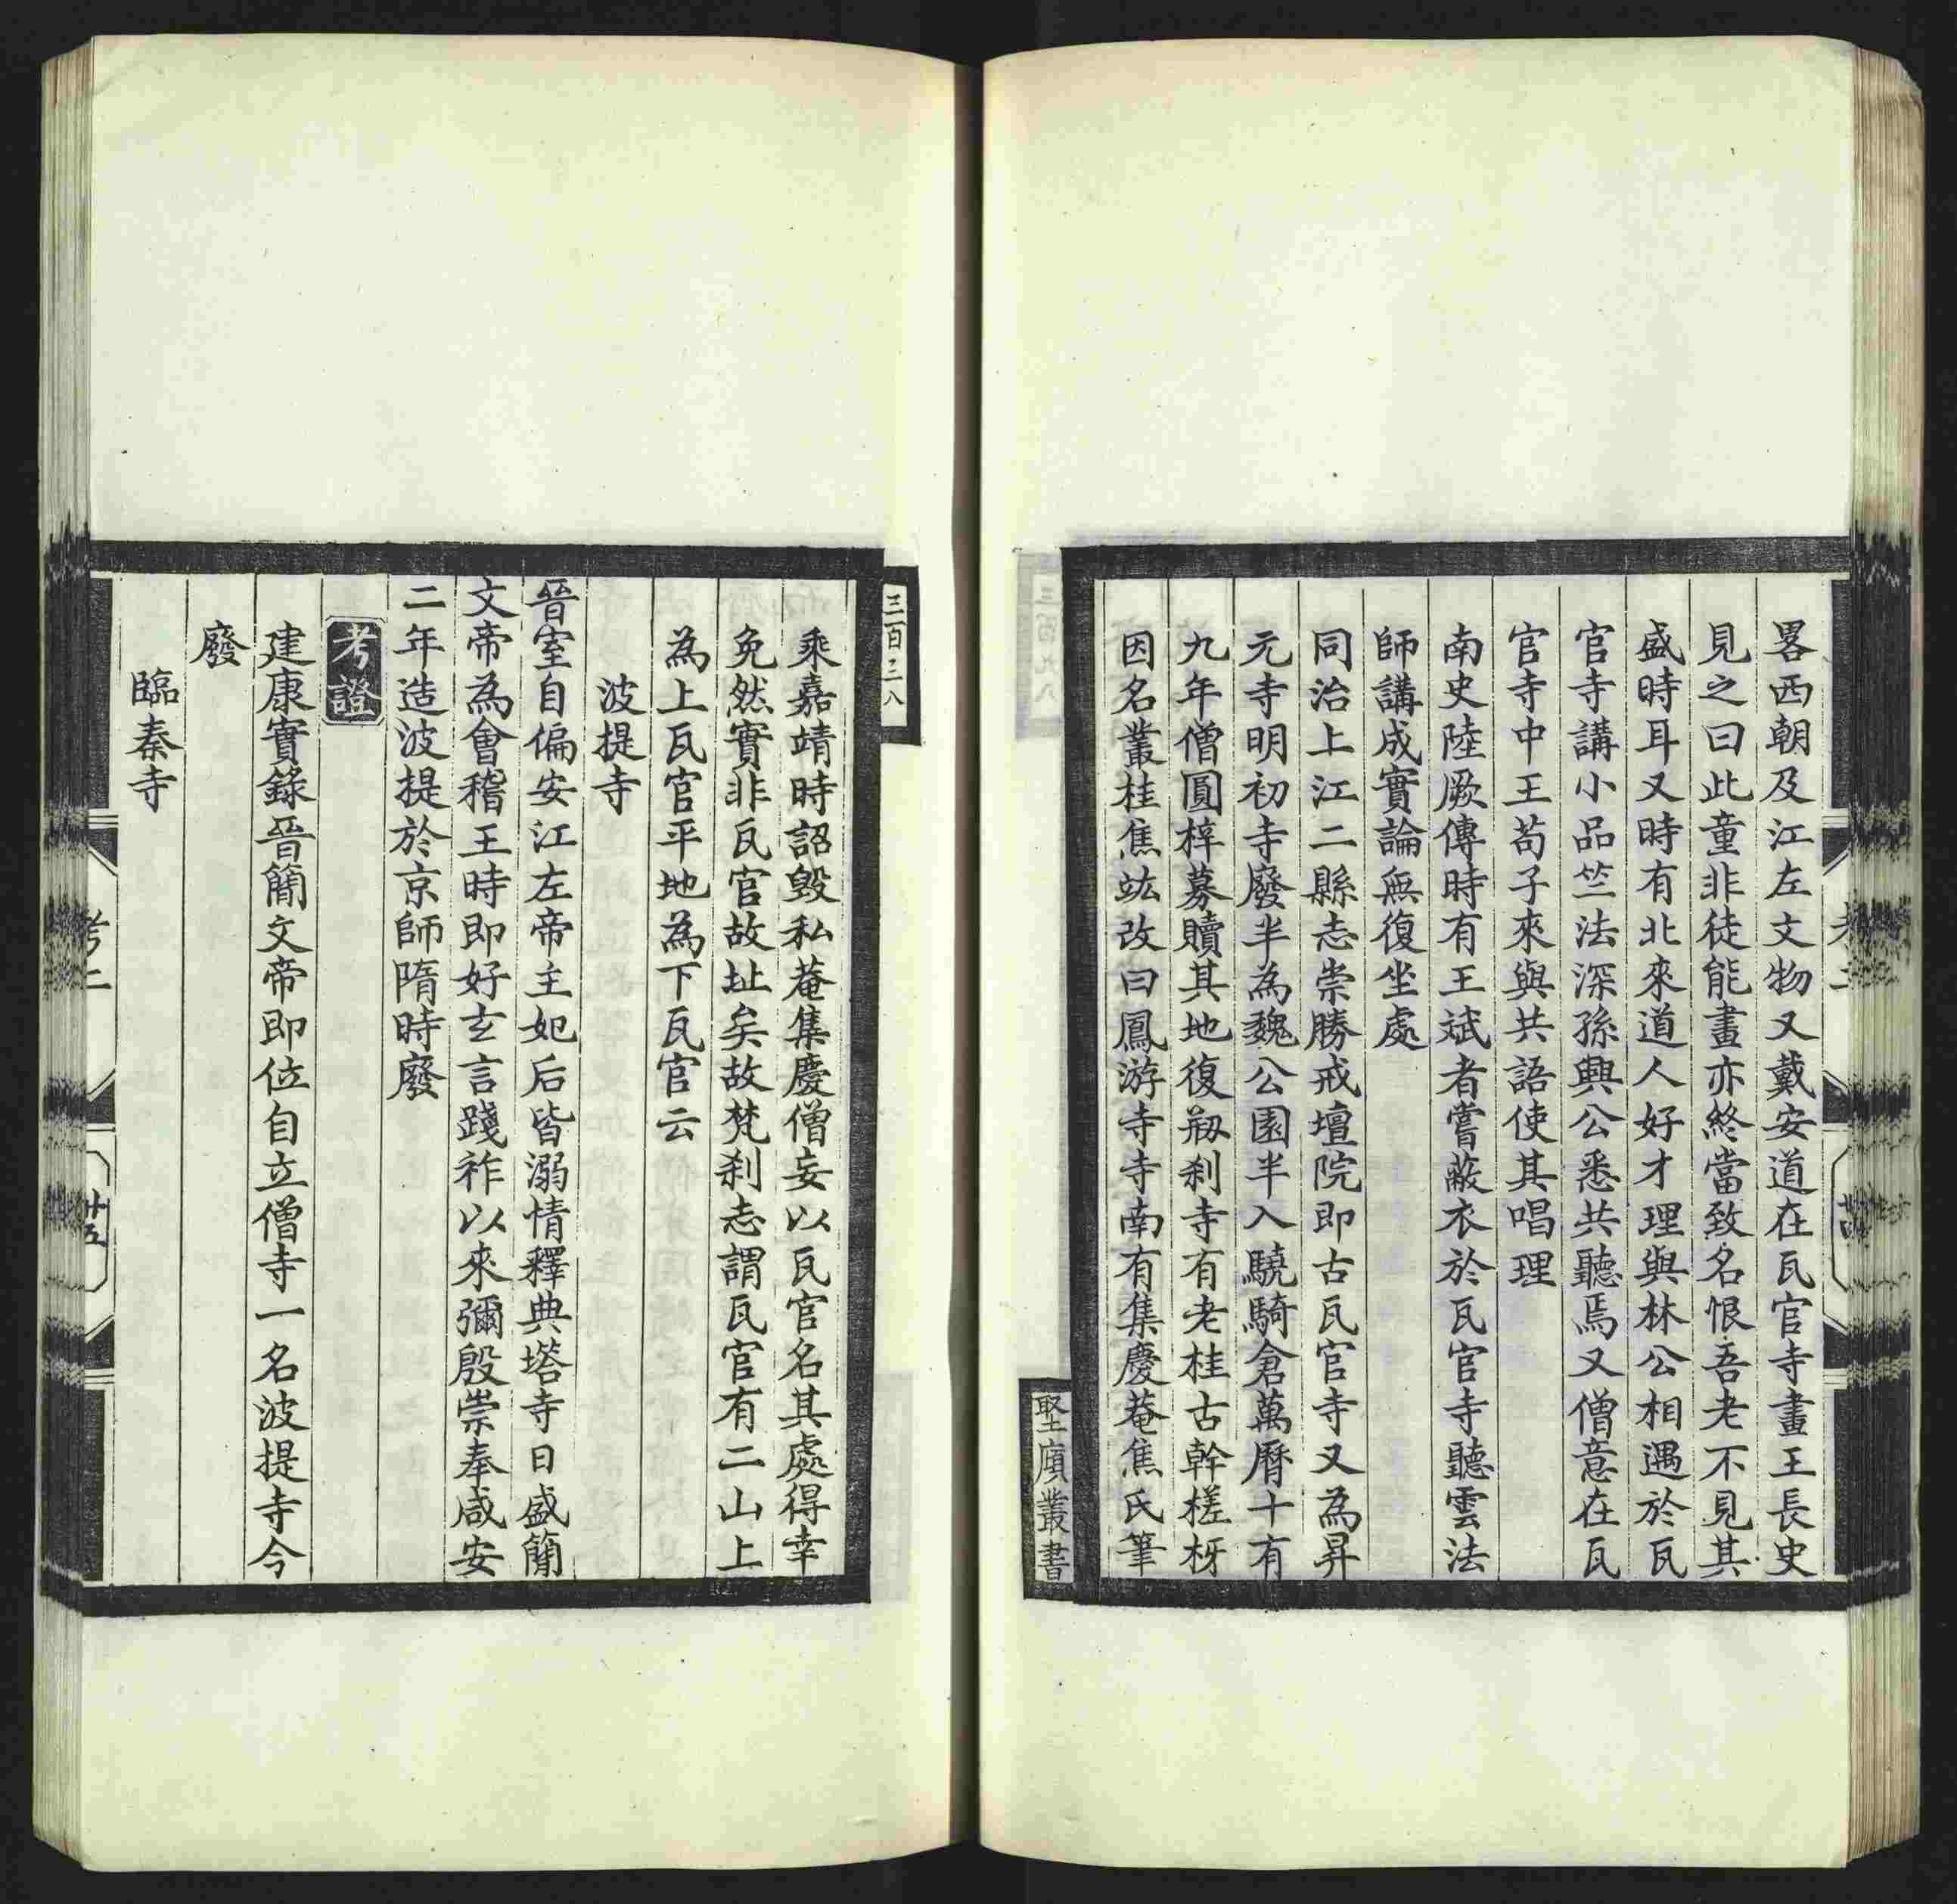 畧西朝及江左文物又戴安道在瓦官寺畫王長史
見之曰此童非徒能畫亦終當致名恨吾老不見其
盛時耳又時有北來道人好才理與林公相遇於瓦
官寺講小品竺法深孫興公悉共聽焉又僧意在瓦
官寺中王苟子來與共語使其唱理
南史陸厥傳時有王斌者嘗蔽衣於瓦官寺聽雲法
師講成實論無復坐處
同治上江二縣志崇勝戒壇院即古瓦官寺又為昇
元寺明初寺廢半為魏公園半入驍騎倉萬曆十有
九年僧圓梓募贖其地復剏刹寺有老桂古幹槎枒
因名叢桂焦竑改曰鳳游寺寺南有集慶菴焦氏筆
叢書
三百三八
乘嘉靖時詔毀私菴集慶僧妄以瓦官名其處得幸
免然實非瓦官故址矣故梵刹志謂瓦官有二山上
為上瓦官平地為下瓦官云
波提寺
晉室自偏安江左帝主妃后皆溺情釋典塔寺日盛簡
文帝為會稽王時即好玄言踐祚以來彌殷崇奉咸安
二年造波提於京師隋時廢
考證
建康實錄晉簡文帝即位自立僧寺一名波提寺今
廢
臨秦寺
考二